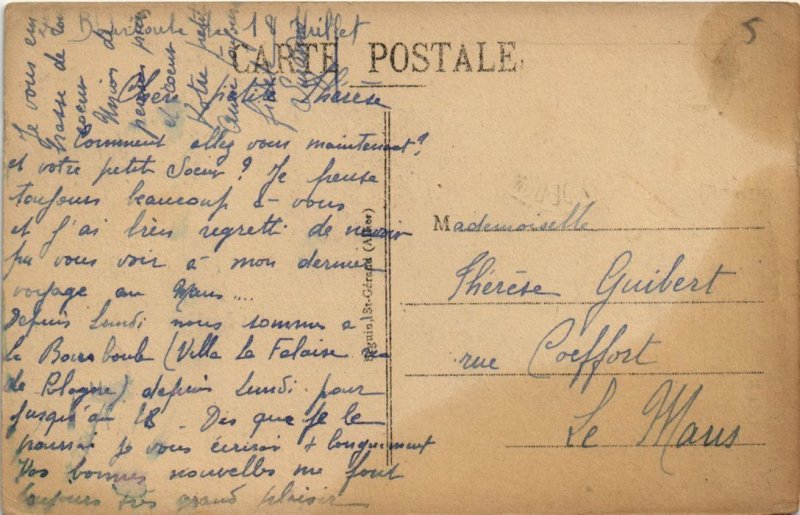 5
La Bourboule le 18 Juillet
CARTE POSTALE
Chère petite Thérèse
Comment allez vous maintenant?
et votre petit Soeur? Je pense
toujours beaucoup à vous
et j'ai bien regretté de n'avoir
pu vous voir à mon dernier
voyage au Mans....
Depuis Lundi nous sommes à
la Bourboule (Villa La Falaise rue
de Pologne) depuis Lundi pour
jusqu'au 28. Dès que je le
pourrai je vous écrirai + longuement
Vos bonnes nouvelles me font
toujours très grand plaisir
Je vous em
brasse de tout
coeur
Unios de
pensées prières
et coeur
Votre petite
amie toujours
Béguin, St-Gérand (Allier)
Mademoiselle
Thérèse Guibert
rue Coeffort
Le Mans